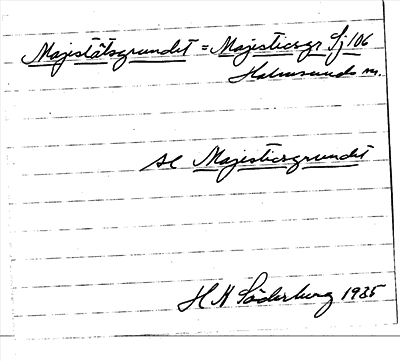 Majestätsgrundet = Majesticsgr Sj 106
Holmsunds m.
se Majesticsgrundet
H K Söderberg 1935